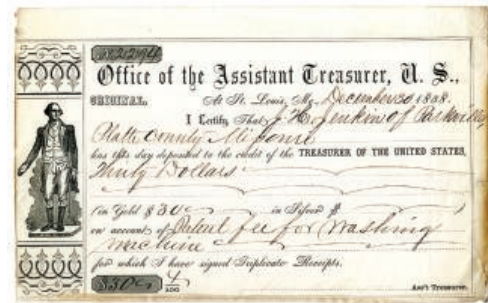 No 22946
Office of the Assistant Treasurer, U. S.,
ORIGINAL. At St. Louis, Mo., December 30 1858.
I Certify That J H Jenkins of Parkville,
Platte County Missouri
has this day deposited to the credit of the TREASURER OF THE UNITED STATES,
Thirty Dollars
(in Gold $ 30 in Silver $ )
on account of Patent fee for Washing
machine
for which I have signed Duplicate Receipts.
$30
Ass't Treasurer.